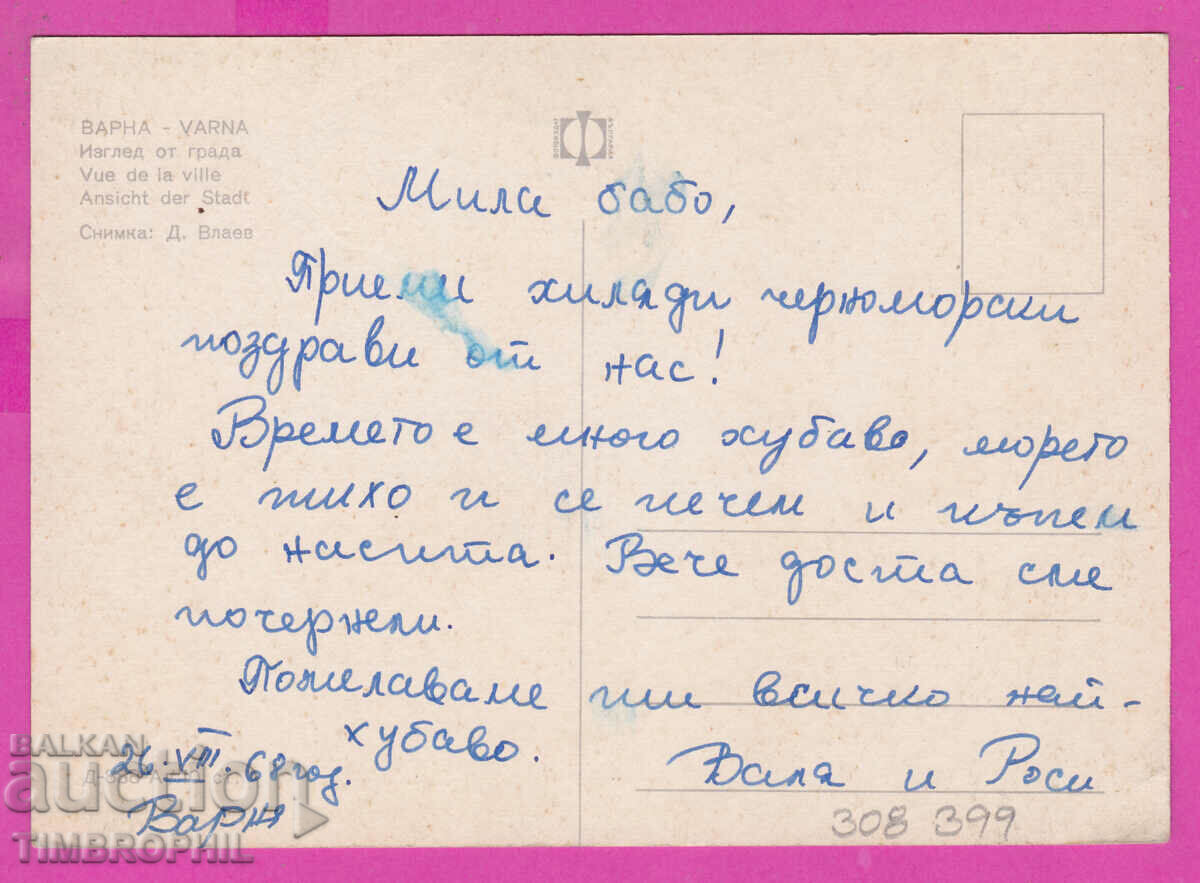 ВАРНА - VARNA
Изглед от града
Vue de la ville
Ansicht der Stadt
Снимка: Д. Влаев
ФОТОИЗДАТ
БЪЛГАРИЯ
Мила бабо,
Приеми хиляди черноморски
поздрави от нас!
Времето е много хубаво, морето
е тихо и се печем и къпем
до насита. Вече доста сме
почернели.
Пожелаваме ти всичко най-
хубаво.
26. VIII. 68 год.
Варна
Валя и Роси
308 399
BALKAN
auction
TIMBROPHIL